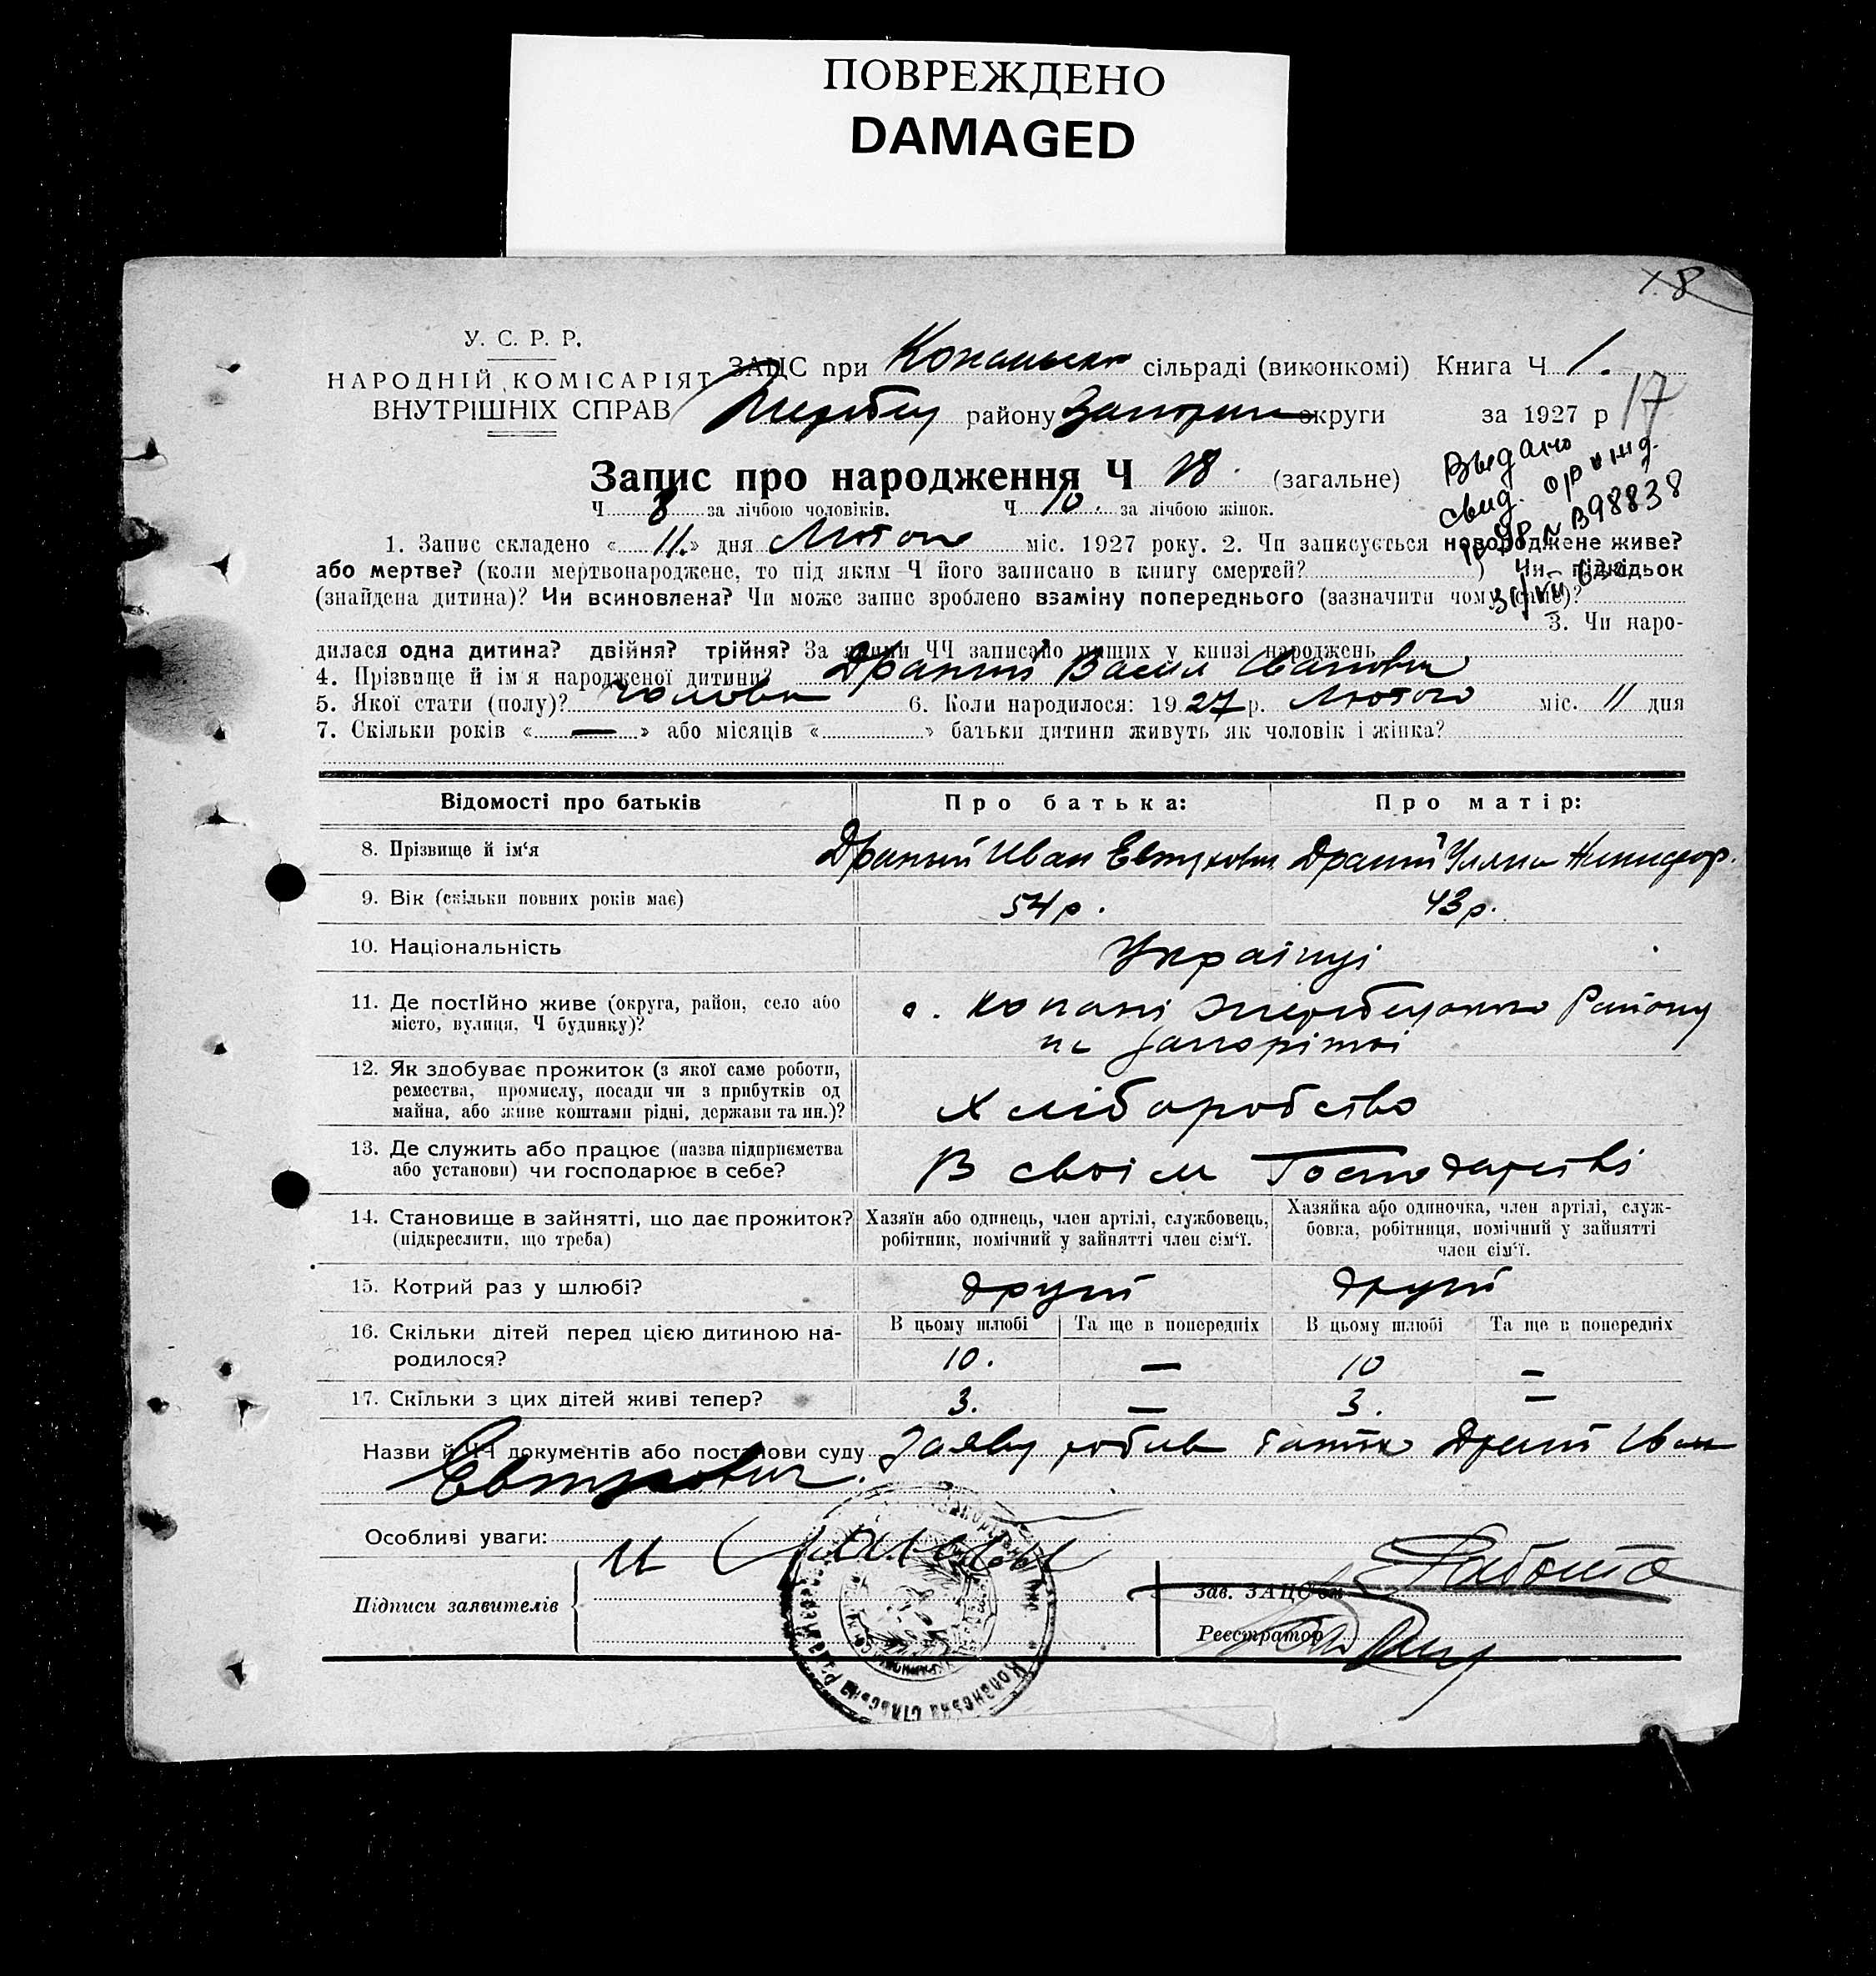 ПОВРЕЖДЕНО
DAMAGED
8
У. С. Р. Р.
НАРОДНІЙ КОМІСАРІЯТ
ВНУТРІШНІХ СПРАВ
ЗАЦС при сільраді (виконкомі) Книга Ч 1.
району округи за 1927 р
17
Запис про народження Ч 18. (загальне)
Ч 8 за лічбою чоловіків. Ч 10. за лічбою жінок.
Выдано
свид.
В98838
1. Запис складено « 11. » дня Лютого міс. 1927 року. 2. Чи записується новороджене живе?
або мертве? (коли мертвонароджене, то під яким Ч його записано в книгу смертей? ) Чи підкідьок
(знайдена дитина)? Чи всиновлена? Чи може запис зроблено взаміну попереднього (зазначити чому саме)?
3. Чи наро-
дилася одна дитина? двійня? трійня? За якими ЧЧ записано инших у книзі народжень
4. Прізвище й ім'я народженої дитини? Драний Васил Іванович
5. Якої стати (полу)? чолов 6. Коли народилося: 1927 р. Лютого міс. 11 дня
7. Скільки років « — » або місяців « » батьки дитини живуть як чоловік і жінка?
Відомості про батьків Про батька: Про матір:
8. Прізвище й ім'я Драный Иван Евтухович Драний Уляна Никифор.
9. Вік (скільки повних років має) 54 р. 43 р.
10. Національність Українці
11. Де постійно живе (округа, район, село або
місто, вулиця, Ч будинку)?
с. Копані Району
на Запоріжжі
12. Як здобуває прожиток (з якої саме роботи,
ремества, промислу, посади чи з прибутків од
майна, або живе коштами рідні, держави та ин.)?
Хліборобство
13. Де служить або працює (назва підприємства
або установи) чи господарює в себе?
В своїм Господарстві
14. Становище в зайнятті, що дає прожиток?
(підкреслити, що треба)
Хазяїн або одинець, член артілі, службовець,
робітник, помічний у зайнятті член сім'ї.
Хазяйка або одиночка, член артілі, служ-
бовка, робітниця, помічний у зайнятті
член сім'ї.
15. Котрий раз у шлюбі? другий другий
16. Скільки дітей перед цією дитиною на-
родилося?
В цьому шлюбі Та ще в попередніх В цьому шлюбі Та ще в попередніх
10. — 10 —
17. Скільки з цих дітей живі тепер? 3. — 3. —
Назви й ЧЧ документів або постанови суду Заяву робив батько Драний Іван
Евтухович.
Особливі уваги:
Підписи заявителів
Зав. ЗАЦС'ом
Реєстратор
Копанська сільська рада